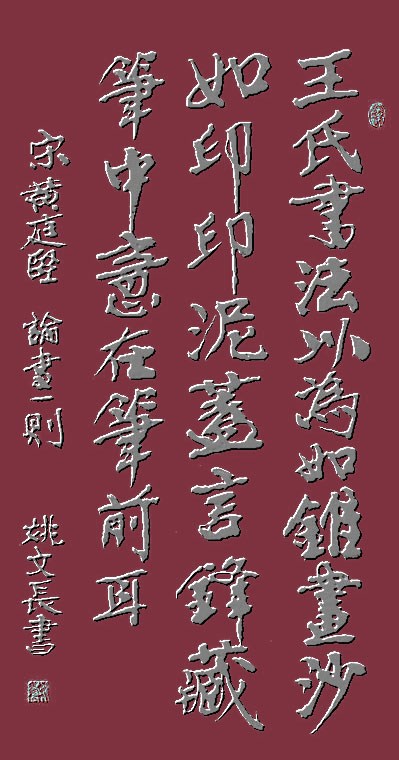 王氏書法以為如錐畫沙
如印印泥蓋言鋒藏
筆中意在筆前耳
宋黄庭堅 論書一則 姚文長書